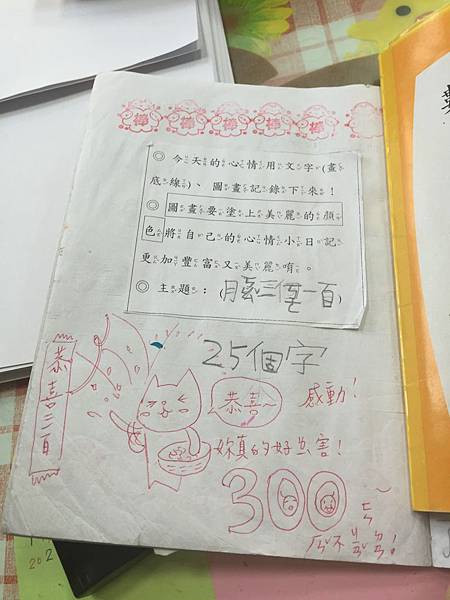 棒 棒 棒 棒 棒 棒
◎ 今天的心情用文字(畫
底線)、圖畫記錄下來!
◎ 圖畫要塗上美麗的顏
色將自己的心情小日記
更加豐富又美麗唷。
◎ 主題:(月考三個一百)
25個字
恭喜三百
恭喜~
感動!
妳真的好厲害!
300